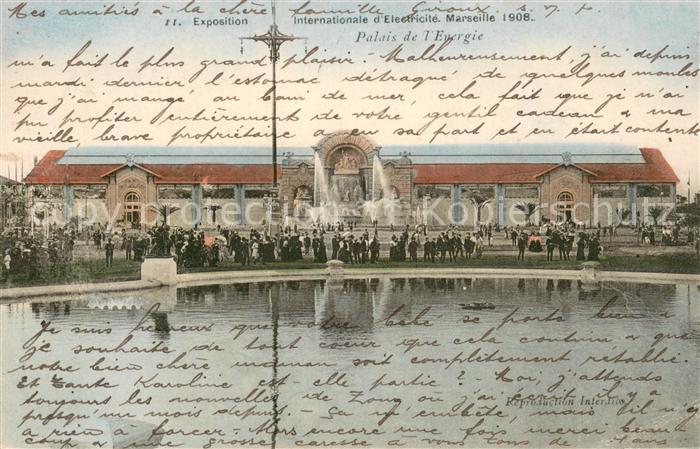 Mes amitiés à la chère famille Giroux. s. v. p.
11. Exposition Internationale d'Electricité. Marseille 1908.
Palais de l'Energie
m'a fait le plus grand plaisir. Malheureusement, j'ai depuis
mardi dernier l'estomac détraqué de quelques moules
que j'ai mangé au bain de mer, cela fait que je n'ai
pu profiter entièrement de votre gentil cadeau & ma
vieille, brave propriétaire a eu sa part et en était contente
copyright protection by Schulz
Je suis heureux que votre bébé se porte bien &
je souhaite de tout cœur que cela continu & que
notre bien chère maman soit complètement rétablie.
Et Tante Karoline est-elle partie? Moi, j'attends
toujours les nouvelles de Zoug où j'ai écrit il y a
presqu'un mois depuis. Ça m'embête, mais il n'y
Reproduction Interdite
a rien à forcer. Alors encore une fois merci beau
coup & une grosse caresse à vous tous de